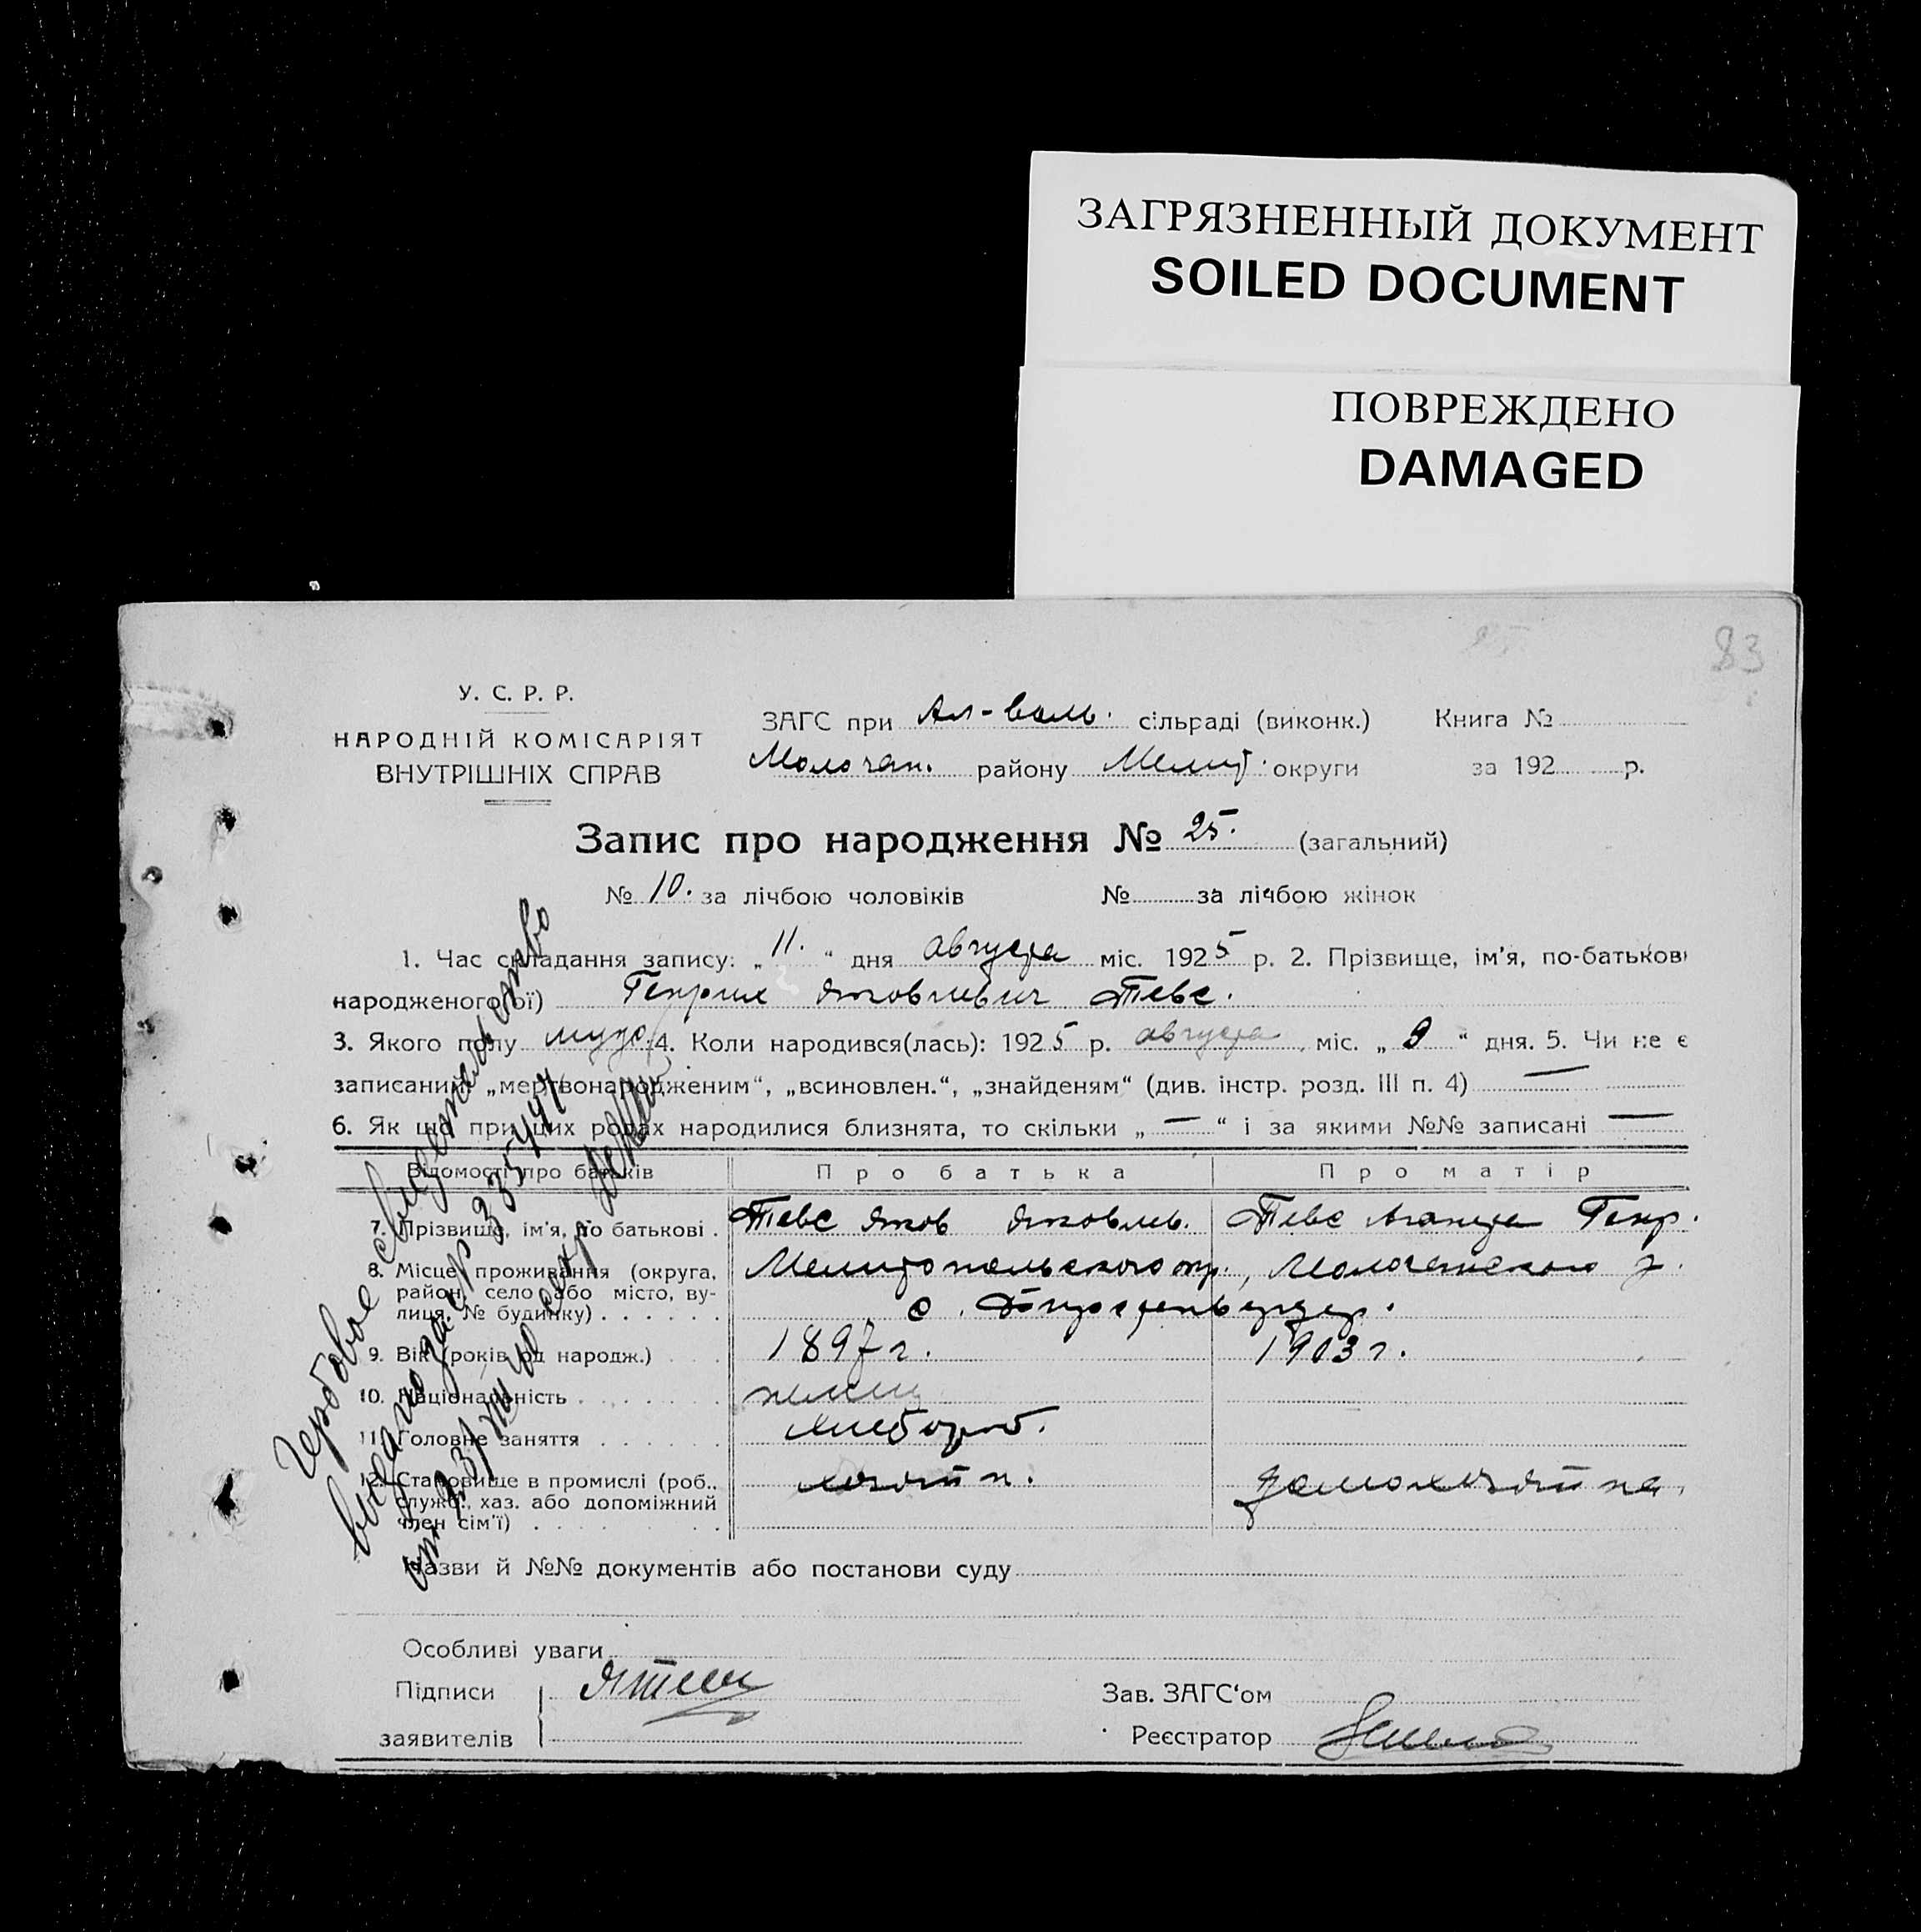 ЗАГРЯЗНЕННЫЙ ДОКУМЕНТ
SOILED DOCUMENT
ПОВРЕЖДЕНО
DAMAGED
83
У. С. Р. Р.
НАРОДНІЙ КОМІСАРІЯТ
ВНУТРІШНІХ СПРАВ
ЗАГС при Ал-валь. сільраді (виконк.) Книга №
Молочан. району Мелит. округи за 192 р.
Запис про народження № 25. (загальний)
№ 10. за лічбою чоловіків № за лічбою жінок
1. Час складання запису: „ 11. “ дня августа міс. 1925 р. 2. Прізвище, ім'я, по-батькові
народженого(ої) Генрих Яковлевич Тевс.
3. Якого полу муж. 4. Коли народився(лась): 1925 р. августа міс. „ 9 “ дня. 5. Чи не є
записаний „мертвонародженим“, „всиновлен.“, „знайденям“ (див. інстр. розд. III п. 4) —
6. Як що при цих родах народилися близнята, то скільки „ — “ і за якими №№ записані —
Відомості про батьків Про батька Про матір
7. Прізвище, ім'я, по батькові . Тевс Яков Яковлев. Тевс Аганета Генр.
8. Місце проживання (округа, район, село або місто, вулиця, № будинку) . . . . . . Мелитопольского окр., Молочанского р.
с.
9. Вік (років од народж.) . . . 1897 г. 1903 г.
10. Національність . . . . . . . немец
11. Головне заняття . . . . . . хлебороб.
12. Становище в промислі (роб., служб., хаз. або допоміжний член сім'ї) . . . . . . . хозяин. домохозяйка.
Назви й №№ документів або постанови суду
Особливі уваги
Підписи ЯТевс
заявителів
Зав. ЗАГС'ом
Реєстратор
Гербовое свидетельство
выдано за № 335447